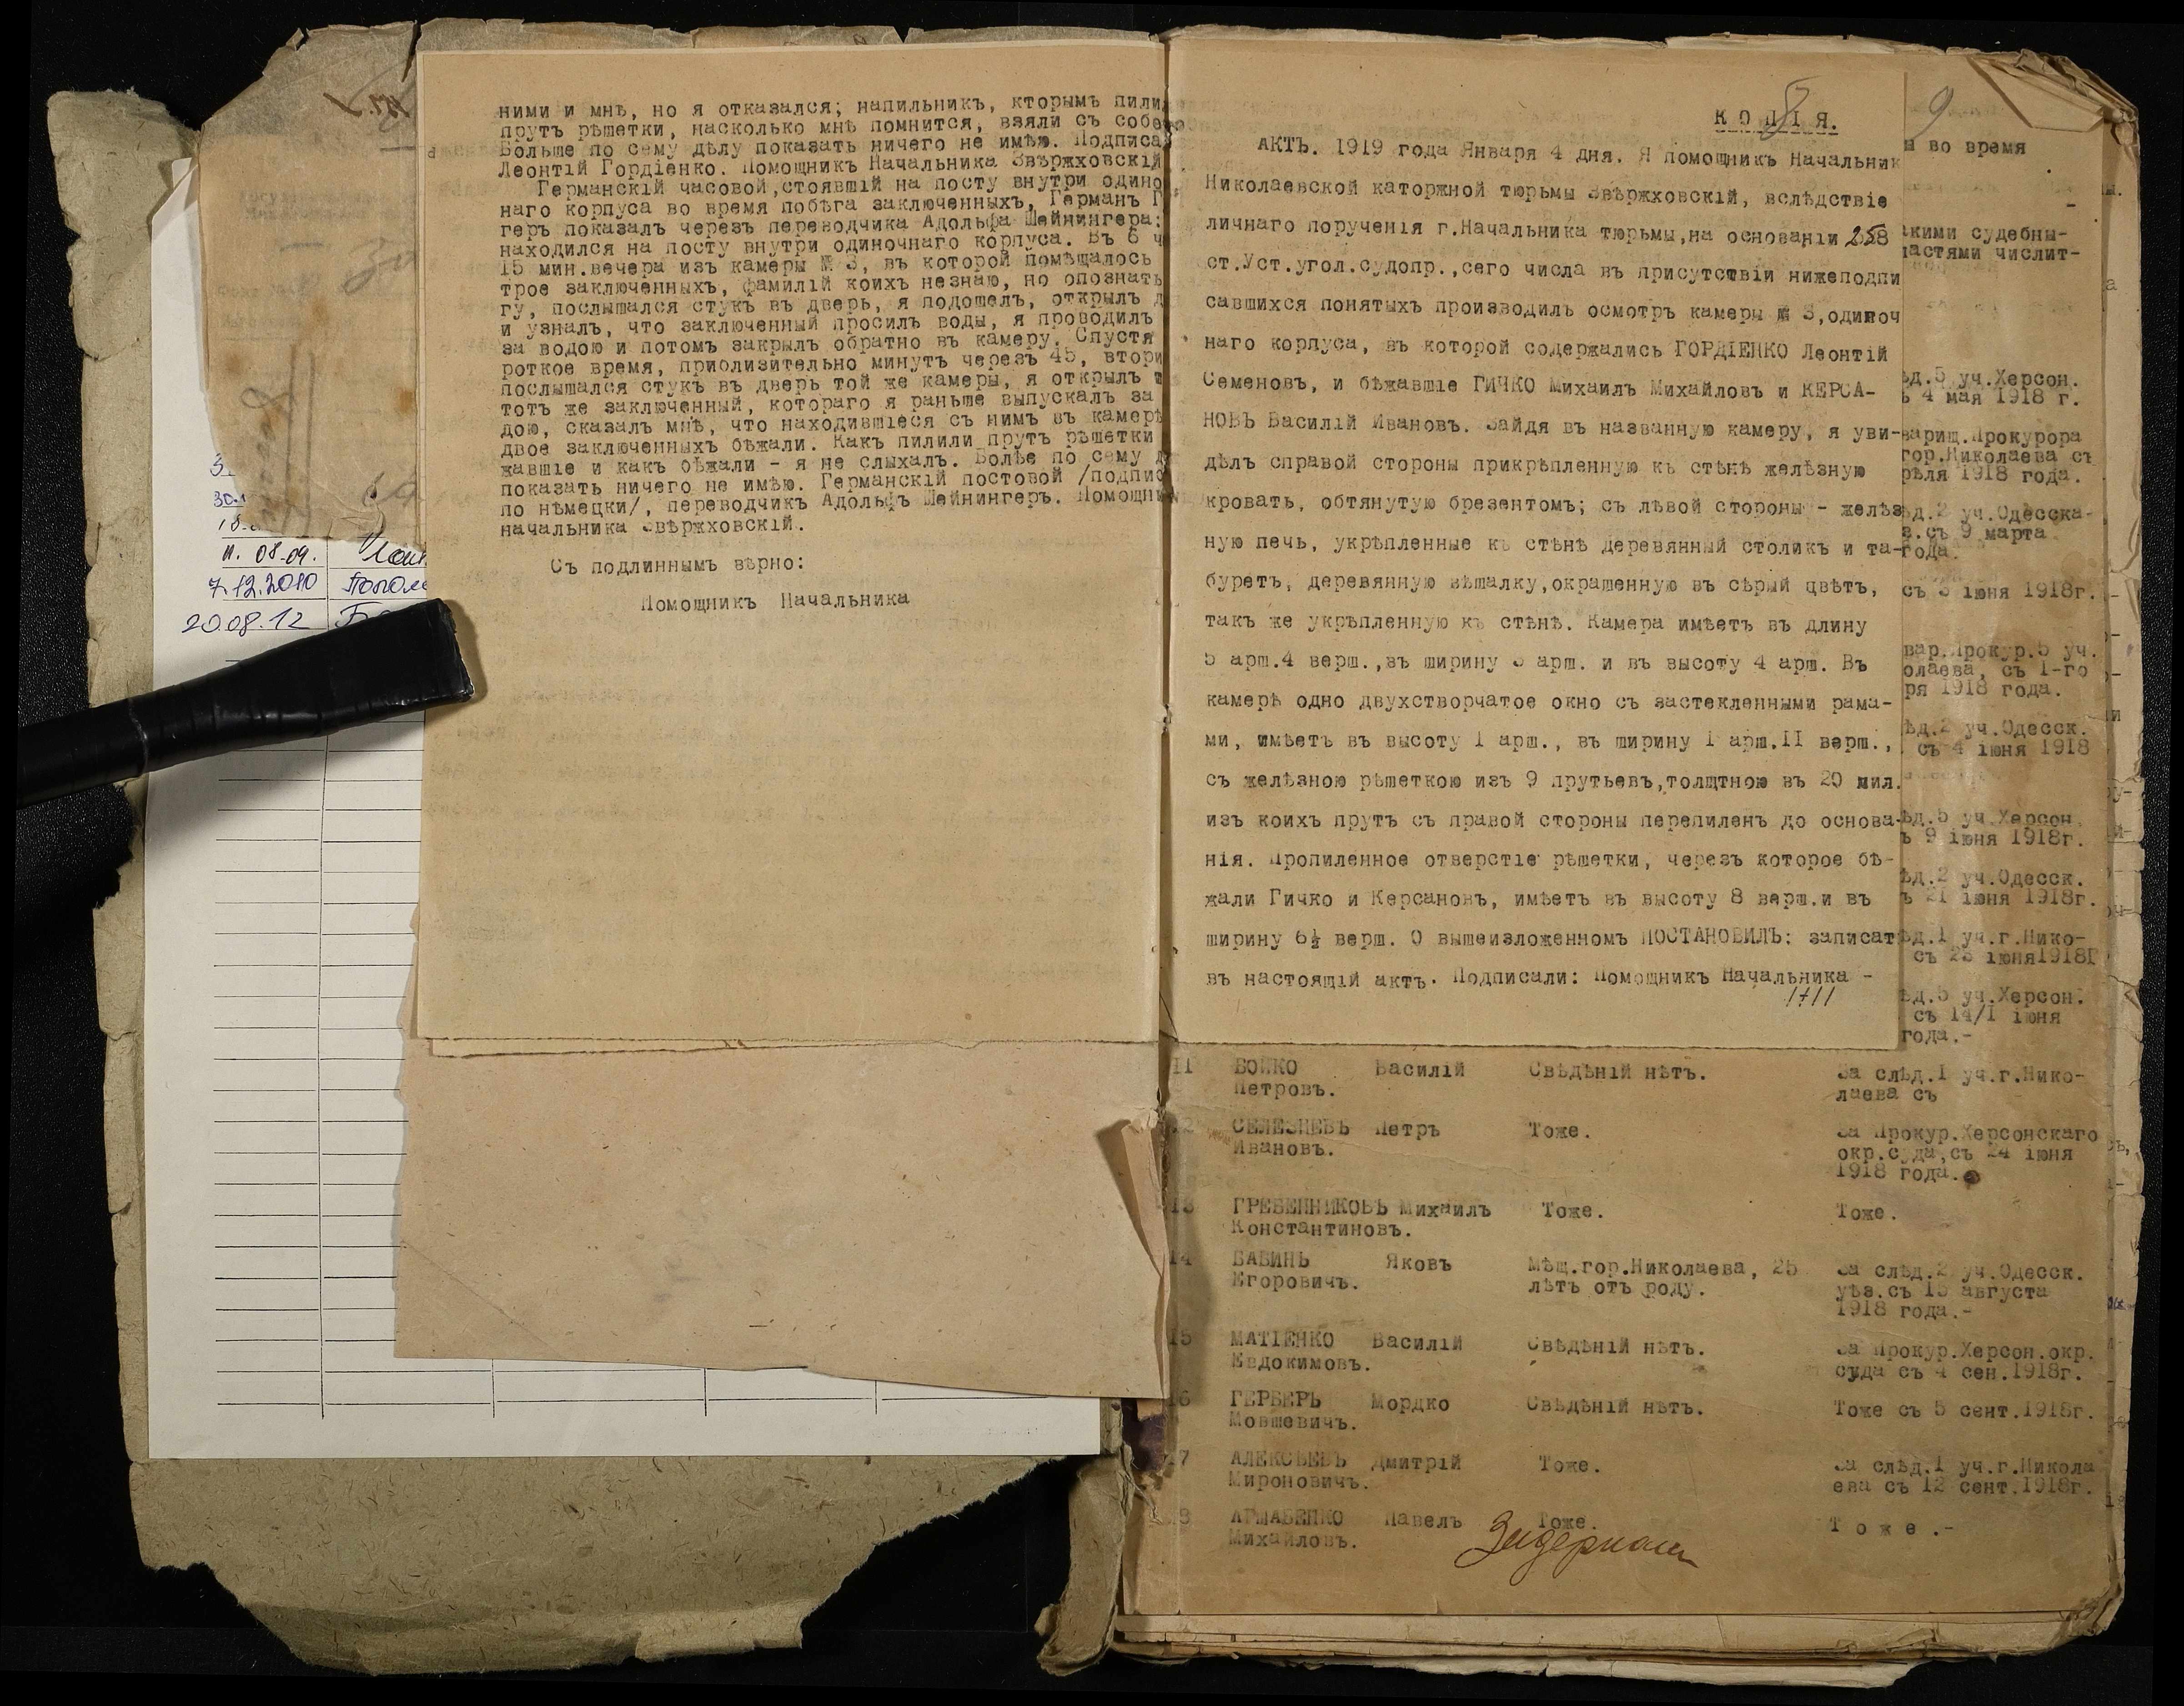 ними и мнѣ, но я отказался; напильникъ, кторымъ пили
прутъ рѣшетки, насколько мнѣ помнится, взяли съ собо
Больше по сему дѣлу показать ничего не имѣю. Подписа
Леонтій Гордіенко. Помощникъ Начальника Звѣржховскій
Германскій часовой,стоявшій на посту внутри одино
наго корпуса во время побѣга заключенныхъ, Германъ Г
геръ показалъ через переводчика Адольфа Шейнингера:
находился на посту внутри одиночнаго корпуса. Въ 6 ч
15 мин.вечера изъ камеры № 3, въ которой помѣщалось
трое заключенныхъ, фамилій коихъ незнаю, но опознать
гу, послышался стукъ въ дверь, я подошелъ, открылъ д
и узналъ, что заключенный просилъ воды, я проводилъ
за водою и потомъ закрылъ обратно въ камеру. Спустя
роткое время, приблизительно минутъ черезъ 45, втори
послышался стукъ въ дверь той же камеры, я открылъ и
тотъ же заключенный, котораго я раньше выпускалъ за
дою, сказалъ мнѣ, что находившіеся съ нимъ въ камерѣ
двое заключенныхъ бѣжали. Какъ пилили прутъ рѣшетки
жавшіе и какъ бѣжали - я не слыхалъ. Болѣе по сему д
показать ничего не имѣю. Германскій постовой /подпис
по нѣмецки/, переводчикъ Адольфъ Шейнингеръ. Помощни
начальника Звѣржховскій.
Съ подлиннымъ вѣрно:
Помощникъ Начальника
11. 08-09.
7.12.2010
20.08.12
8
КОПІЯ.
АКТЪ. 1919 года Января 4 дня. Я помощникъ Начальник
Николаевской каторжной тюрьмы Звѣржховскій, вслѣдствіе
личнаго порученія г.Начальника тюрьмы,на основаніи 258
ст.Уст.угол.судопр.,сего числа въ присутствіи нижеподпи
савшихся понятыхъ производилъ осмотръ камеры № 3,одиноч
наго корпуса, въ которой содержались ГОРДІЕНКО Леонтій
Семеновъ, и бѣжавшіе ГИЧКО Михаилъ Михайловъ и КЕРСА-
НОВЪ Василій Ивановъ. Зайдя въ названную камеру, я уви-
дѣлъ справой стороны прикрѣпленную къ стѣнѣ желѣзную
кровать, обтянутую брезентомъ; съ лѣвой стороны - желѣз
ную печь, укрѣпленные къ стѣнѣ деревянный столикъ и та-
буретъ, деревянную вѣшалку,окрашенную въ сѣрый цвѣтъ,
такъ же укрѣпленную къ стѣнѣ. Камера имѣетъ въ длину
5 арш.4 верш.,въ ширину 3 арш. и въ высоту 4 арш. Въ
камерѣ одно двухстворчатое окно съ застекленными рама-
ми, имѣетъ въ высоту 1 арш., въ ширину 1 арш.11 верш.,
съ желѣзною рѣшеткою изъ 9 прутьевъ,толщтною въ 20 мил.
изъ коихъ прутъ съ правой стороны перепиленъ до основа-
нія. Пропиленное отверстіе рѣшетки, черезъ которое бѣ-
жали Гичко и Керсановъ, имѣетъ въ высоту 8 верш.и въ
ширину 6½ верш. О вышеизложенномъ ПОСТАНОВИЛЪ: записат
въ настоящій актъ. Подписали: Помощникъ Начальника -
9
ы во время
кими судебны-
ластями числит-
ѣд.5 уч.Херсон.
ъ 4 мая 1918 г.
варищ.Прокурора
гор.Николаева съ
рѣля 1918 года.
ѣд.2 уч.Одесска-
з.съ 9 марта
года.
съ 3 іюня 1918г.
вар.Прокур.5 уч.
олаева, съ 1-го
ря 1918 года.
ѣд.2 уч.Одесск.
съ 4 іюня 1918
ѣд.5 уч.Херсон.
ъ 9 іюня 1918г.
ѣд.2 уч.Одесск.
ъ 21 іюня 1918г.
ѣд.1 уч.г.Нико-
съ 23 іюня1918г
ѣд.5 уч.Херсон.
съ 14/1 іюня
года.-
11 БОЙКО Василій Свѣдѣній нѣтъ. За слѣд.1 уч.г.Нико-
Петровъ. лаева съ
12 СЕЛЕЗНЕВЪ Петръ Тоже. За Прокур.Херсонскаго
Ивановъ. окр.суда,съ 24 іюня
1918 года.
13 ГРЕБЕННИКОВЪ Михаилъ Тоже. Тоже.
Константиновъ.
14 БАБИНЪ Яковъ Мѣщ.гор.Николаева, 25 За слѣд.2 уч.Одесск.
Егоровичъ. лѣтъ отъ роду. уѣз.съ 15 августа
1918 года.-
15 МАТІЕНКО Василій Свѣдѣній нѣтъ. За Прокур.Херсон.окр.
Евдокимовъ. суда съ 4 сен.1918г.
16 ГЕРБЕРЪ Мордко Свѣдѣній нѣтъ. Тоже съ 5 сент.1918г.
Мовшевичъ.
17 АЛЕКСѢЕВЪ Дмитрій Тоже. За слѣд.1 уч.г.Никола
Мироновичъ. ева съ 12 сент.1918г.
8 Павелъ Тоже. Тоже.-
Михайловъ.